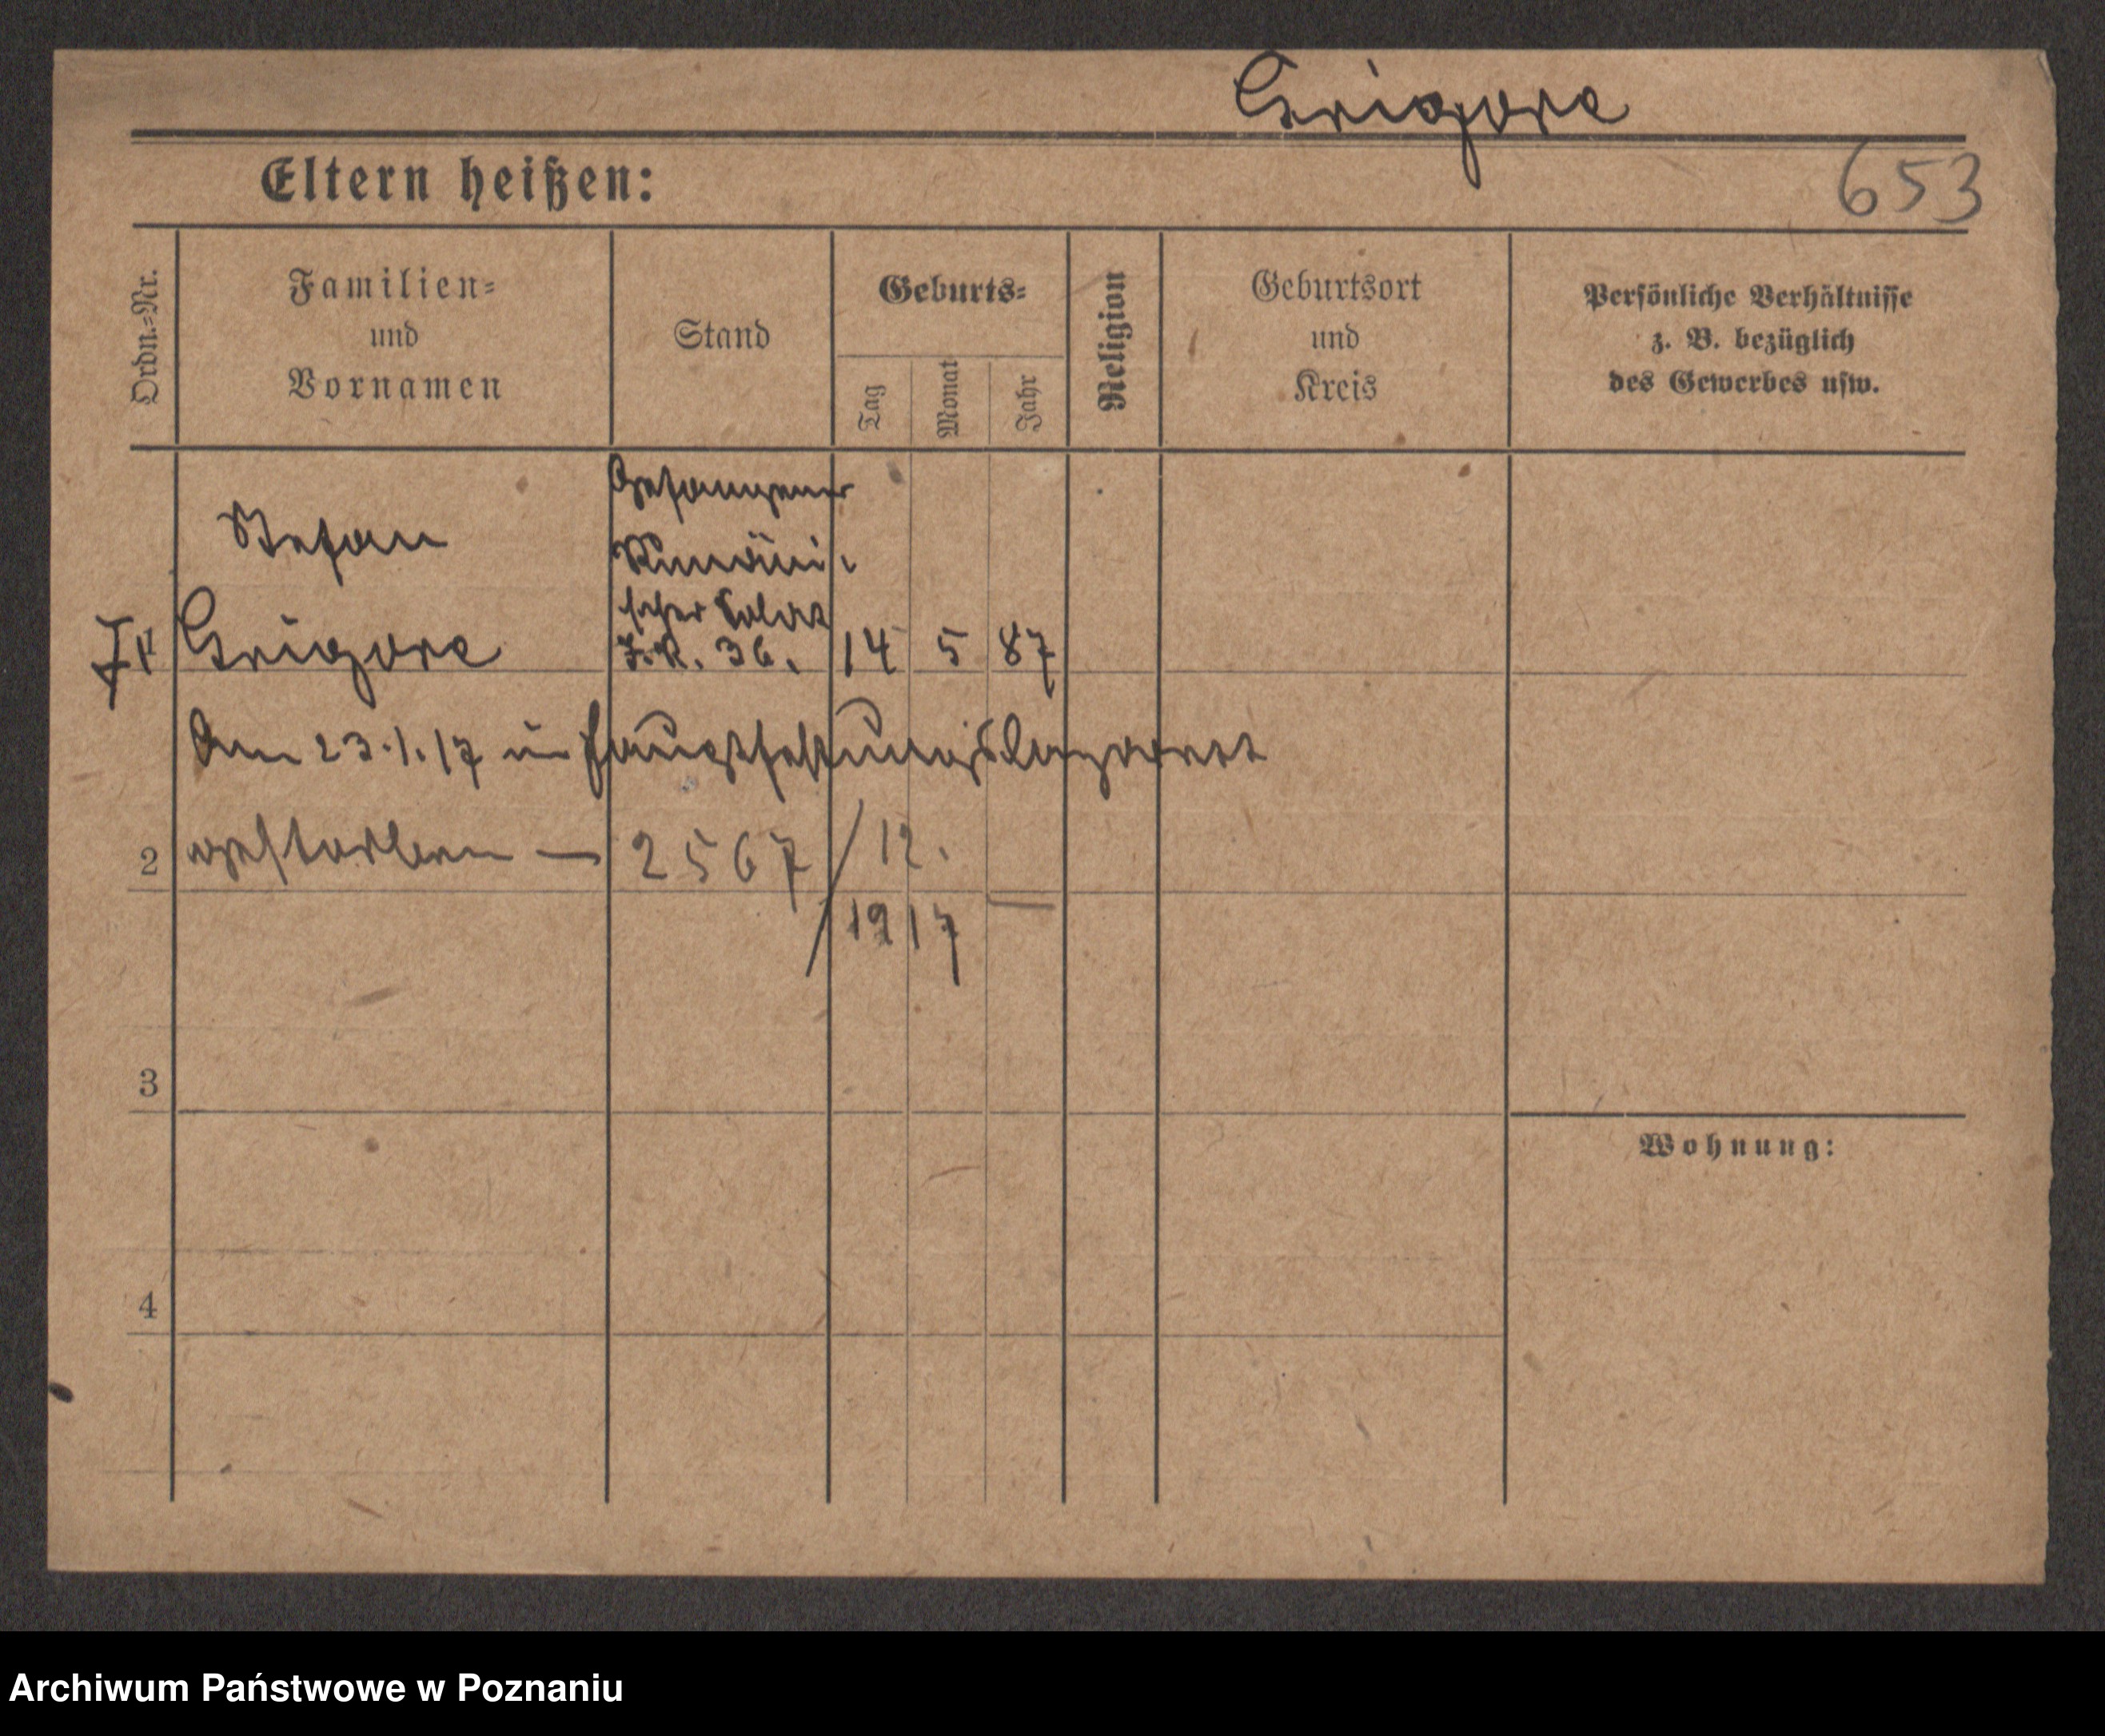 Grigore
Eltern heißen:
653
Ordn.-Nr.
Familien-
und
Vornamen
Stand
Geburts-
Tag
Monat
Jahr
Religion
Geburtsort
und
Kreis
Persönliche Verhältnisse
z. B. bezüglich
des Gewerbes usw.
Stefan
Gefangener
Rumäni-
scher Soldat
1 Grigore J.R. 36. 14 5 87
Am 23.1.17 im Hauptfestungslazarett
2 gestorben — 2567/12.
1917 —
3
Wohnung:
4
Archiwum Państwowe w Poznaniu